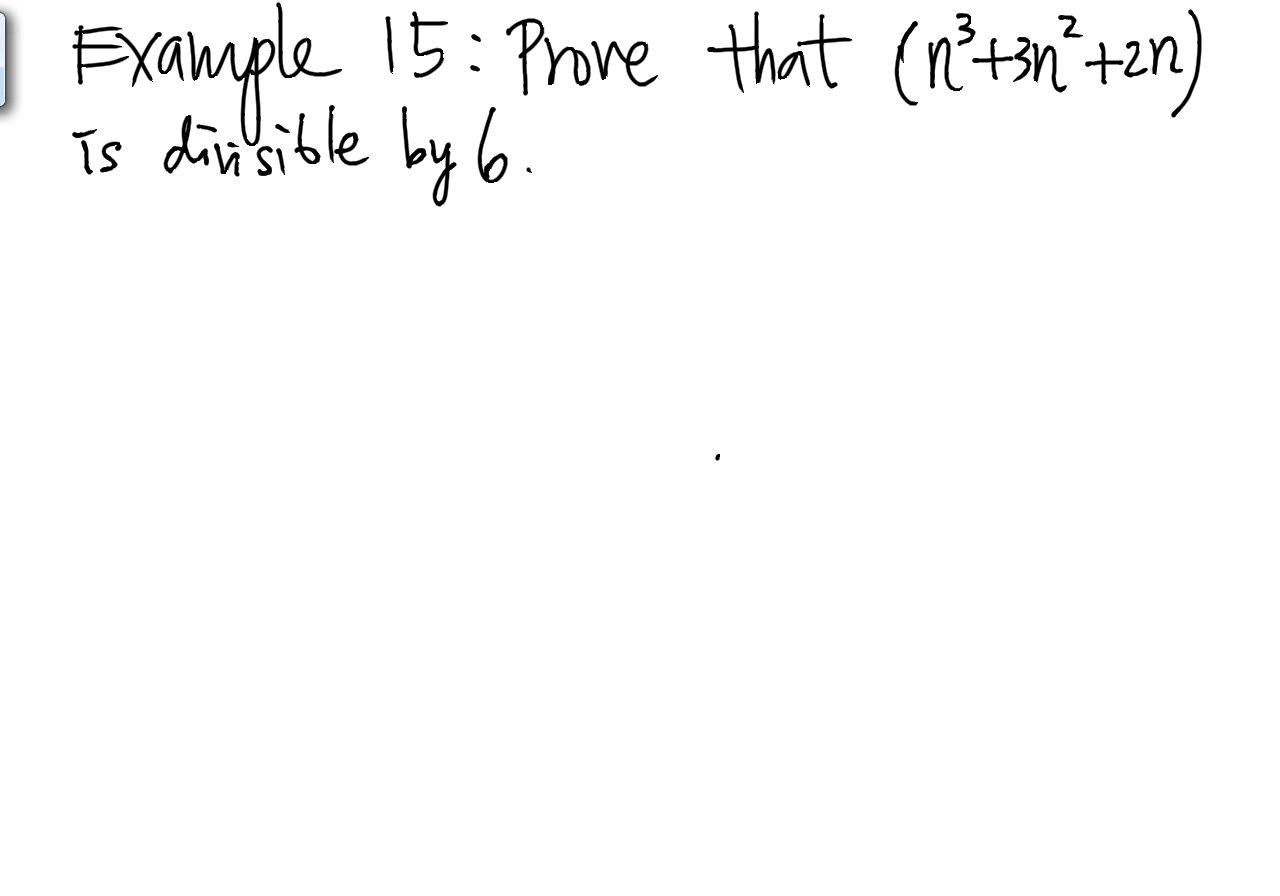 Example 15: Prove that (n³+3n²+2n)
is divisible by 6.